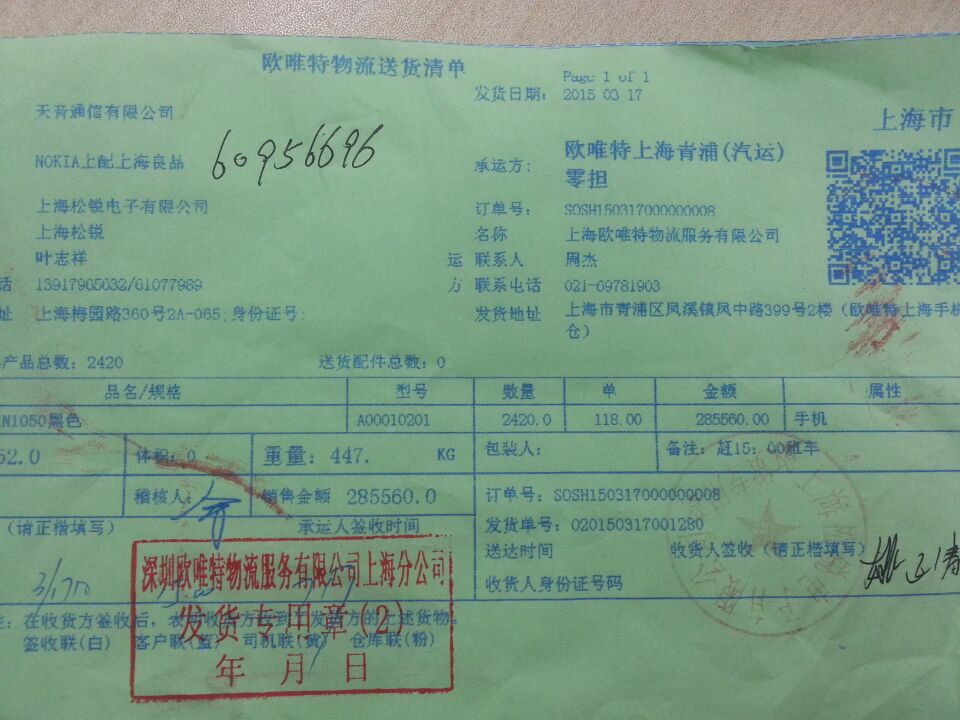 欧唯特物流送货清单
Page 1 of 1
发货日期: 2015 03 17
天音通信有限公司
上海市
NOKIA上配上海良品
60956696
承运方:
欧唯特上海青浦(汽运)
零担
上海松锐电子有限公司
订单号: SOSH150317000000008
上海松锐
名称 上海欧唯特物流服务有限公司
叶志祥
运 联系人 周杰
话 13917905032/61077989
方 联系电话 021-69781903
址 上海梅园路360号2A-065;身份证号:
发货地址 上海市青浦区凤溪镇凤中路399号2楼(欧唯特上海手机
仓)
产品总数: 2420 送货配件总数: 0
品名/规格 型号 数量 单 金额 属性
N1050黑色 A00010201 2420.0 118.00 285560.00 手机
52.0 体积: 0 重量: 447. KG 包装人: 备注: 赶15:00班车
稽核人: 销售金额 285560.0 订单号: SOSH150317000000008
(请正楷填写) 承运人签收时间
发货单号: 020150317001280
送达时间 收货人签收(请正楷填写)
收货人身份证号码
深圳欧唯特物流服务有限公司上海分公司
发货专用章(2)
年 月 日
注: 在收货方签收后,表明收货方收到了发货方的上述货物。
签收联(白) 客户联(蓝) 司机联(黄) 仓库联(粉)